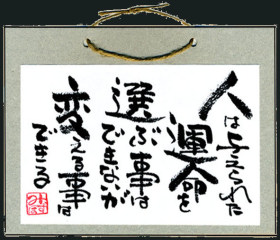 人は与えられた
運命を
選ぶ事は
できないが
変える事は
できる